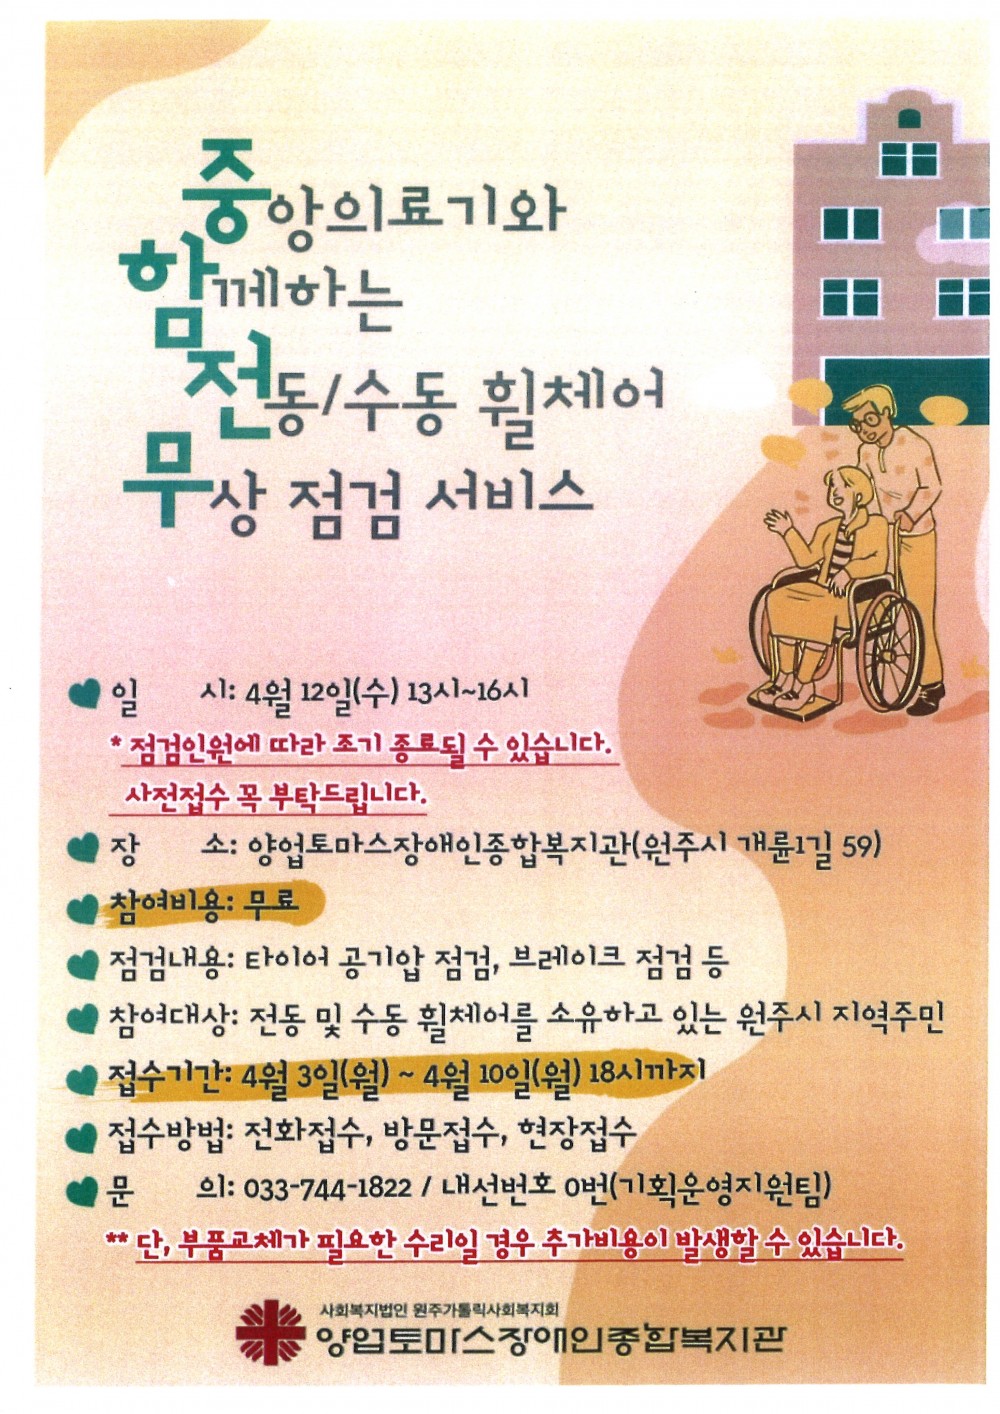 중앙의료기와
함께하는
전동/수동 휠체어
무상 점검 서비스
일 시: 4월 12일(수) 13시~16시
* 점검인원에 따라 조기 종료될 수 있습니다.
사전접수 꼭 부탁드립니다.
장 소: 양업토마스장애인종합복지관(원주시 개륜1길 59)
참여비용: 무료
점검내용: 타이어 공기압 점검, 브레이크 점검 등
참여대상: 전동 및 수동 휠체어를 소유하고 있는 원주시 지역주민
접수기간: 4월 3일(월) ~ 4월 10일(월) 18시까지
접수방법: 전화접수, 방문접수, 현장접수
문 의: 033-744-1822 / 내선번호 0번(기획운영지원팀)
** 단, 부품교체가 필요한 수리일 경우 추가비용이 발생할 수 있습니다.
사회복지법인 원주가톨릭사회복지회
양업토마스장애인종합복지관